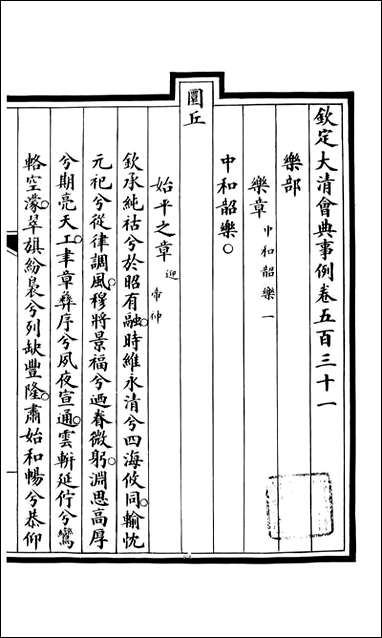 欽定大清會典事例卷五百三十一
樂部
樂章中和韶樂一
中和韶樂○
圜丘
始平之章迎帝神
欽承純祜兮於昭有融○時維永清兮四海攸同○輸忱
元祀兮從律調風○穆將景福兮迺眷微躬○淵思高厚
兮期亮天工○聿章彝序兮夙夜宣通○雲軿延佇兮鸞
輅空濛○翠旗紛裊兮列缺豐隆○肅始和暢兮恭仰